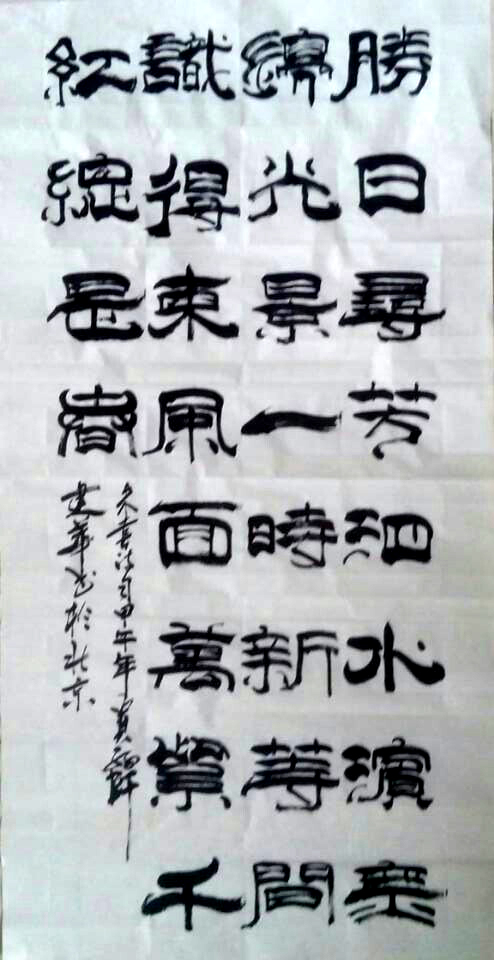 勝日尋芳泗水濱無
邊光景一時新等間
識得東風面萬紫千
紅總是春
甲午年
建華書於北京